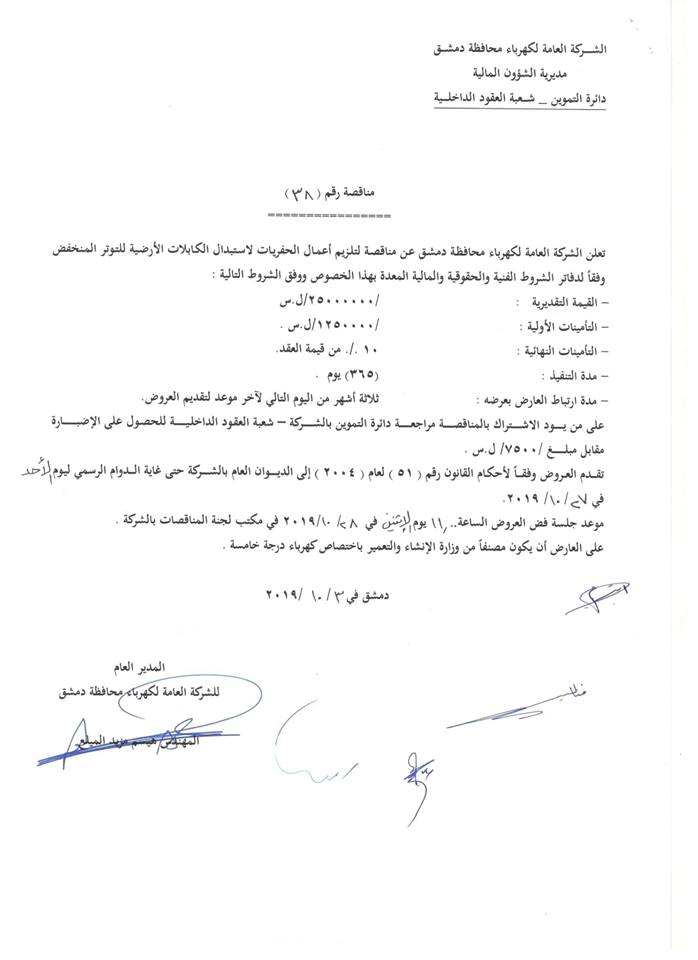 الشركة العامة لكهرباء محافظة دمشق
مديرية الشؤون المالية
دائرة التموين _ شعبة العقود الداخلية
مناقصة رقم (٣٨)
================
تعلن الشركة العامة لكهرباء محافظة دمشق عن مناقصة لتلزيم أعمال الحفريات لاستبدال الكابلات الأرضية للتوتر المنخفض
وفقاً لدفاتر الشروط الفنية والحقوقية والمالية المعدة بهذا الخصوص ووفق الشروط التالية :
– القيمة التقديرية : /٢٥٠٠٠٠٠٠/ل.س
– التأمينات الأولية : /١٢٥٠٠٠٠/ل.س .
– التأمينات النهائية : ١٠ ./. من قيمة العقد.
– مدة التنفيذ : (٣٦٥) يوم .
– مدة ارتباط العارض بعرضه : ثلاثة أشهر من اليوم التالي لآخر موعد لتقديم العروض.
على من يود الاشتراك بالمناقصة مراجعة دائرة التموين بالشركة – شعبة العقود الداخلية للحصول على الإضبارة
مقابل مبلغ /٧٥٠٠/ ل.س .
تقدم العروض وفقاً لأحكام القانون رقم (٥١) لعام (٢٠٠٤) إلى الديوان العام بالشركة حتى غاية الدوام الرسمي ليوم الأحد
في ٢٧/ ١٠/ ٢٠١٩.
موعد جلسة فض العروض الساعة ١١,٠٠ يوم الإثنين في ٢٨ /٢٠١٩/١٠ في مكتب لجنة المناقصات بالشركة .
على العارض أن يكون مصنفاً من وزارة الإنشاء والتعمير باختصاص كهرباء درجة خامسة .
دمشق في ٣ / ١٠ /٢٠١٩
المدير العام
للشركة العامة لكهرباء محافظة دمشق
المهندس هيسم مزيد الميلع